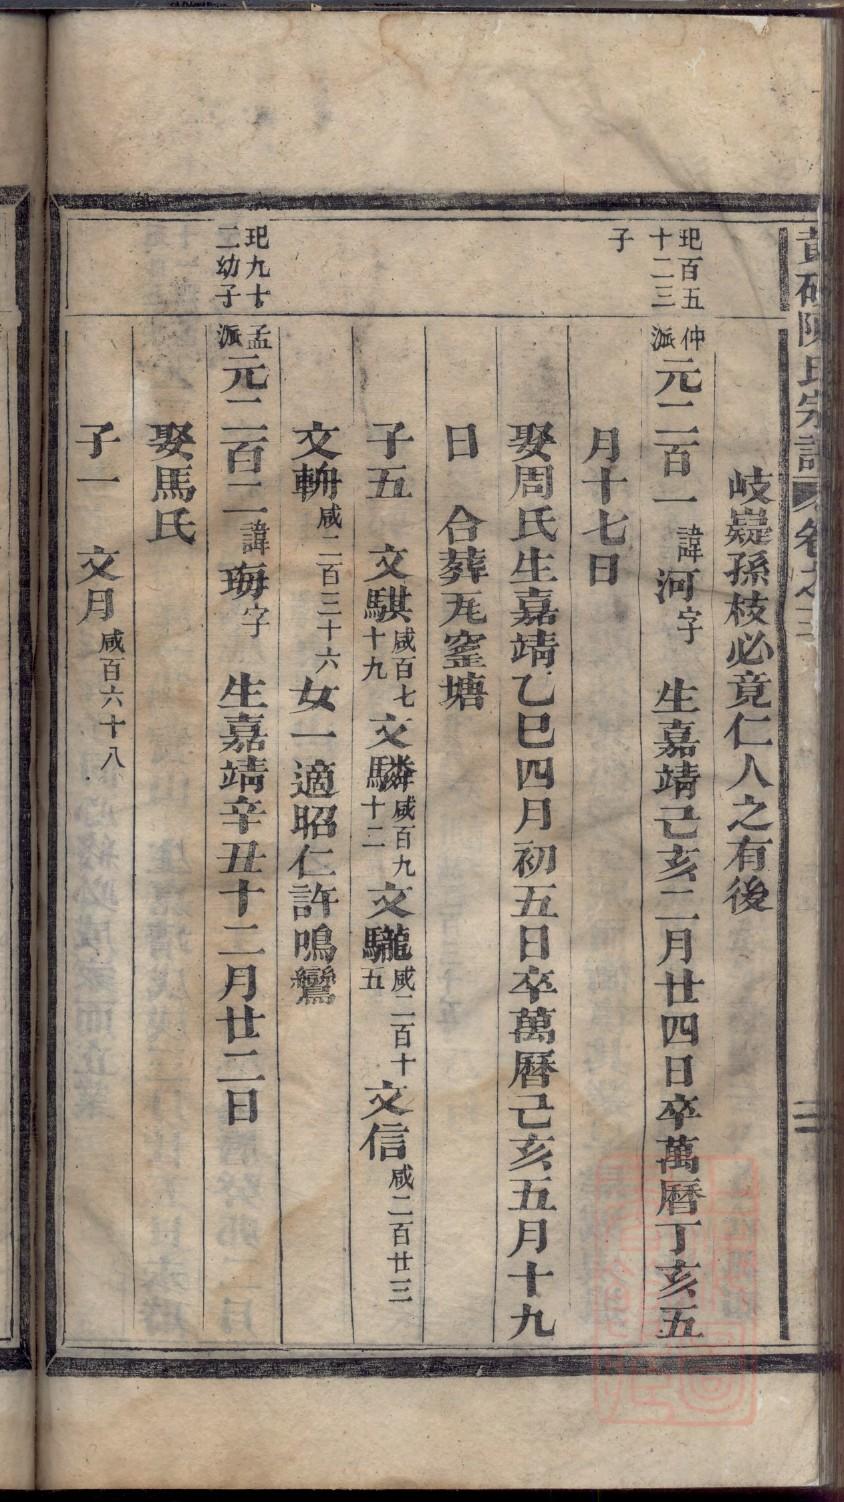 陳氏宗譜 卷之三
岐嶷孫枝必竟仁人之有後
玘百五十二三子
仲派 元二百一 諱河字 生嘉靖己亥二月廿四日卒萬曆丁亥五
月十七日
娶周氏生嘉靖乙巳四月初五日卒萬曆己亥五月十九
日 合葬瓦窰塘
子五 文騏咸百七十九 文驎咸百九十二 文驡咸二百十五 文信咸二百廿三
文軿咸二百三十六 女一適昭仁許鳴鸞
玘九十二幼子
孟派 元二百二 諱海字 生嘉靖辛丑十二月廿二日
娶馬氏
子一 文月咸百六十八